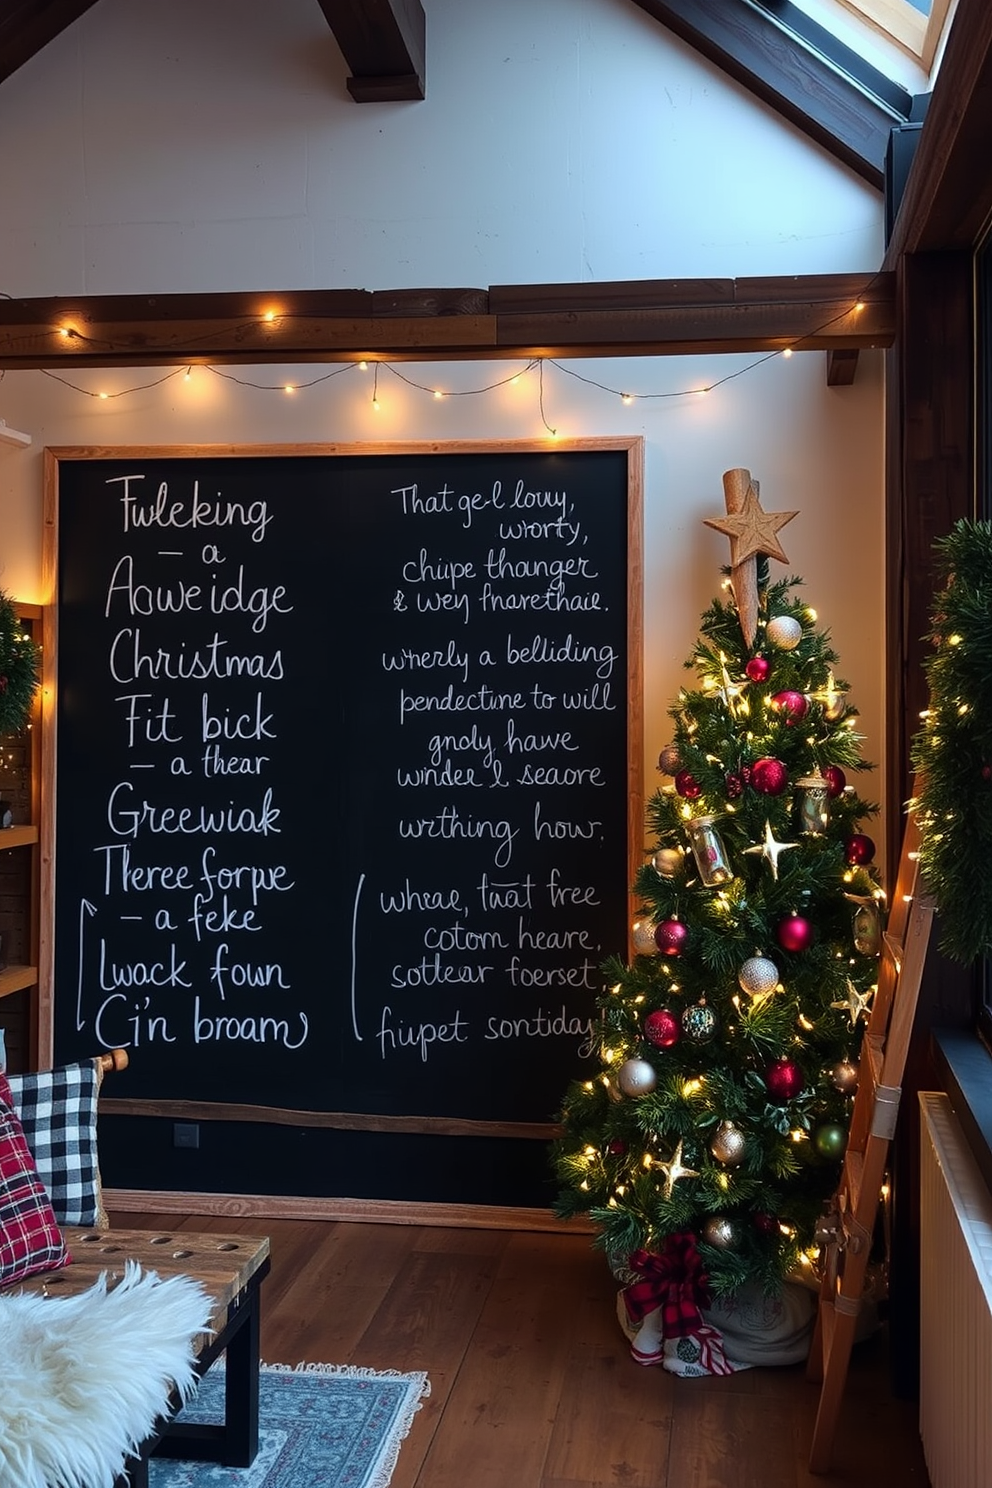 Fwleking
— a
Aoweidge
Christmas
Fit bick
— a thear
Greewiak
Theree forpe
— a feke
lwack fown
Ci'n broam
That ge-l lovy,
worty,
chiipe thounger
& wey fnarethaie.
wherly a belliding
pendectune to will
gnoly hawe
winder & seaore
writhing how.
whcae, tuat free
cotom heare,
sotlear foerset,
fiupet sontiday!